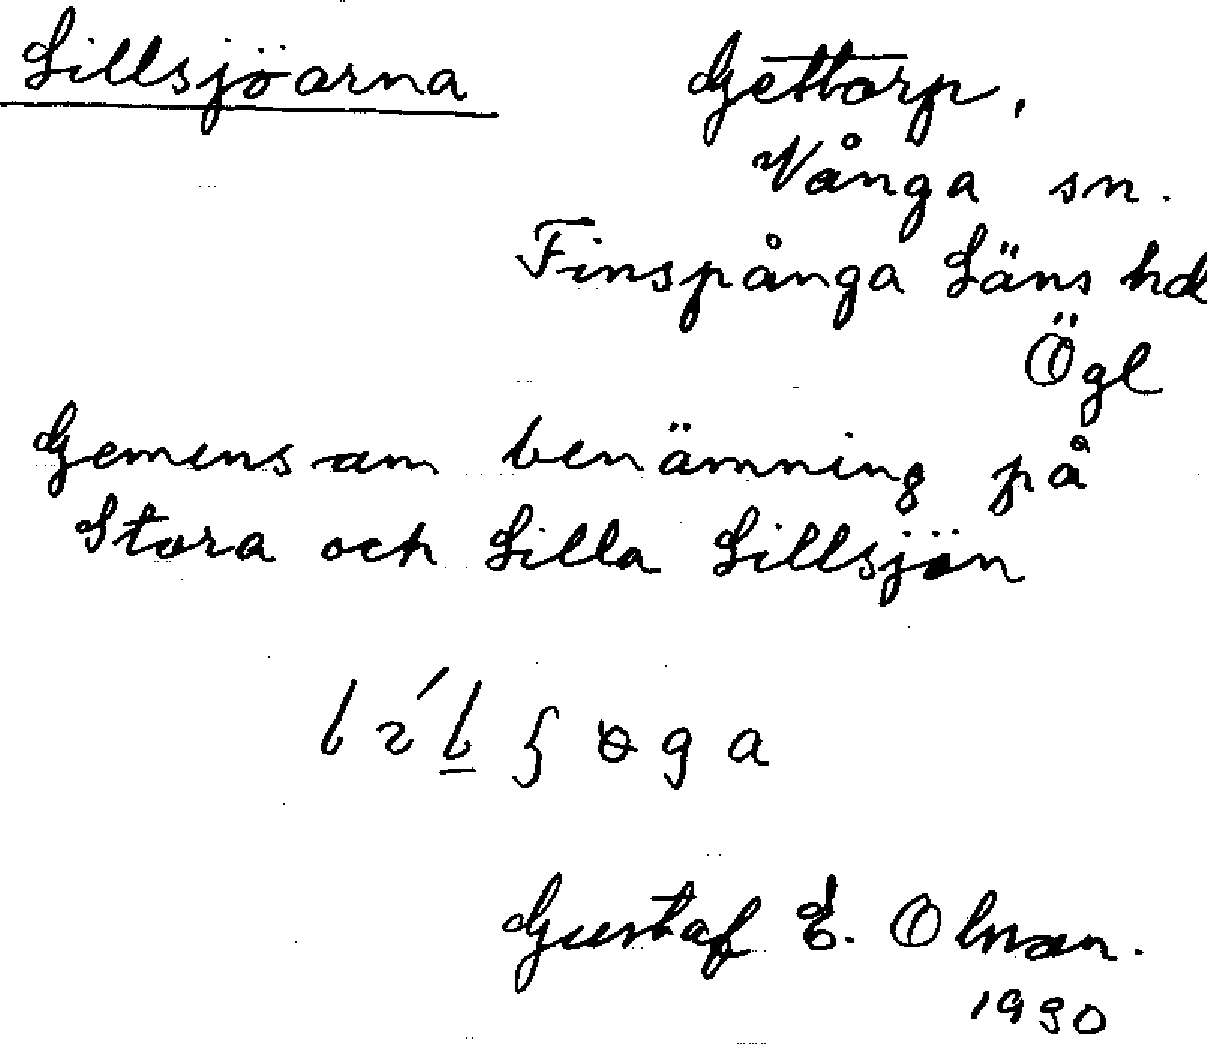 Lillsjöarna
Gettorp,
Vånga sn.
Finspånga Läns hd
Ögl
Gemensam benämning på
Stora och Lilla Lillsjön
Gustaf E. Olsson.
1930